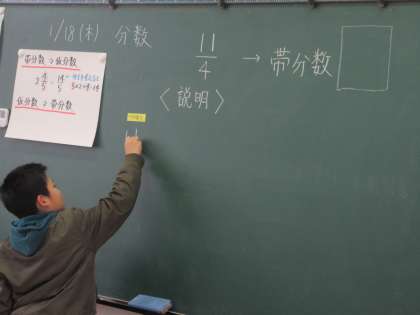 1/18(木) 分数
11/4 → 帯分数
〈説明〉
帯分数→仮分数
2 4/5 = 14/5
仮分数→帯分数